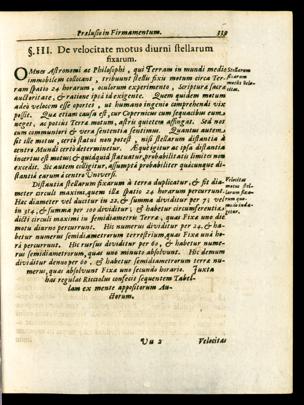 Prælusio in Firmamentum. 339
§. III. De velocitate motus diurni stellarum
fixarum.
Omnes Astronomi ac Philosophi, qui Terram in mundi medio
immobilem collocant, tribuunt stellis fixis motum circa Ter-
ram spatio 24 horarum, oculorum experimento, Scriptura sacra
auctoritate, & ratione ipsa id exigente. Quem quidem motum
adeò velocem esse oportet, ut humano ingenio comprehendi vix
possit. Qua etiam causa est, cur Copernicus cum sequacibus eum
neget, ac potiùs Terræ motum, astris quietem assingat. Sed nos
cum communiori & vera sententia sentimus. Quantus autem
sit ille motus, certò statui non potest, nisi stellarum distantia à
centro Mundi certò determinetur. Æquè igitur ac ipsa distantia
incertus est motus; & quidquid statuatur, probabilitatis limites non
excedit. Sic autem colligitur, assumptâ probabiliter quâcunque di-
stantiâ earum à centro Universi.
Distantia stellarum fixarum à terra duplicatur, & fit dia-
meter circuli maximi, quem illa spatio 24 horarum percurrunt.
Hæc diameter vel ducitur in 22, & summa dividitur per 7; vel
in 314, & summa per 100 dividitur; & habetur circumferentia
dicti circuli maximi in semidiametris Terræ, quas Fixa uno die
motu diurno percurrunt. Hic numerus dividitur per 24, & ha-
betur numerus semidiametrorum terrestrium, quas Fixa unâ ho-
râ percurrunt. Hic rursus dividitur per 60, & habetur nume-
rus semidiametrorum, quas uno minuto absolvunt. Hic demum
dividitur denuo per 60, & habetur semidiametrorum terræ nu-
merus, quas absolvunt Fixa uno secundo horario. Juxta
has regulas Ricciolus confecit sequentem Tabel-
lam ex mente appositorum Au-
ctorum.
Stellarum
fixarum
motus
Velocitas
motus stel-
larum
Uu 2 Velocitas